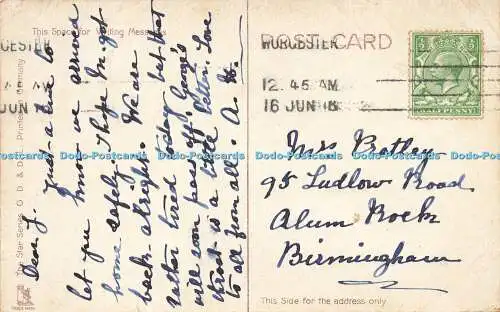 This Space for Writing Messages
Dear J.
Just a line to
let you know we arrived
home safely. I hope M. got
back alright. We are
rather tired today but that
will soon pass off. Connie's
throat is a little better. Love
to all from all. A.
The Star Series. G. D. & D. L. Printed in Germany
TRADE MARK
POST CARD
WORCESTER
12. 45 AM
16 JUN 16
CESTER
AM
JUN
Mrs Botley
95 Ludlow Road
Alum Rock
Birmingham
This Side for the address only
Dodo-Postcards Dodo-Postcards Dodo-Postcards Dodo-Postcards Dodo-Postcards